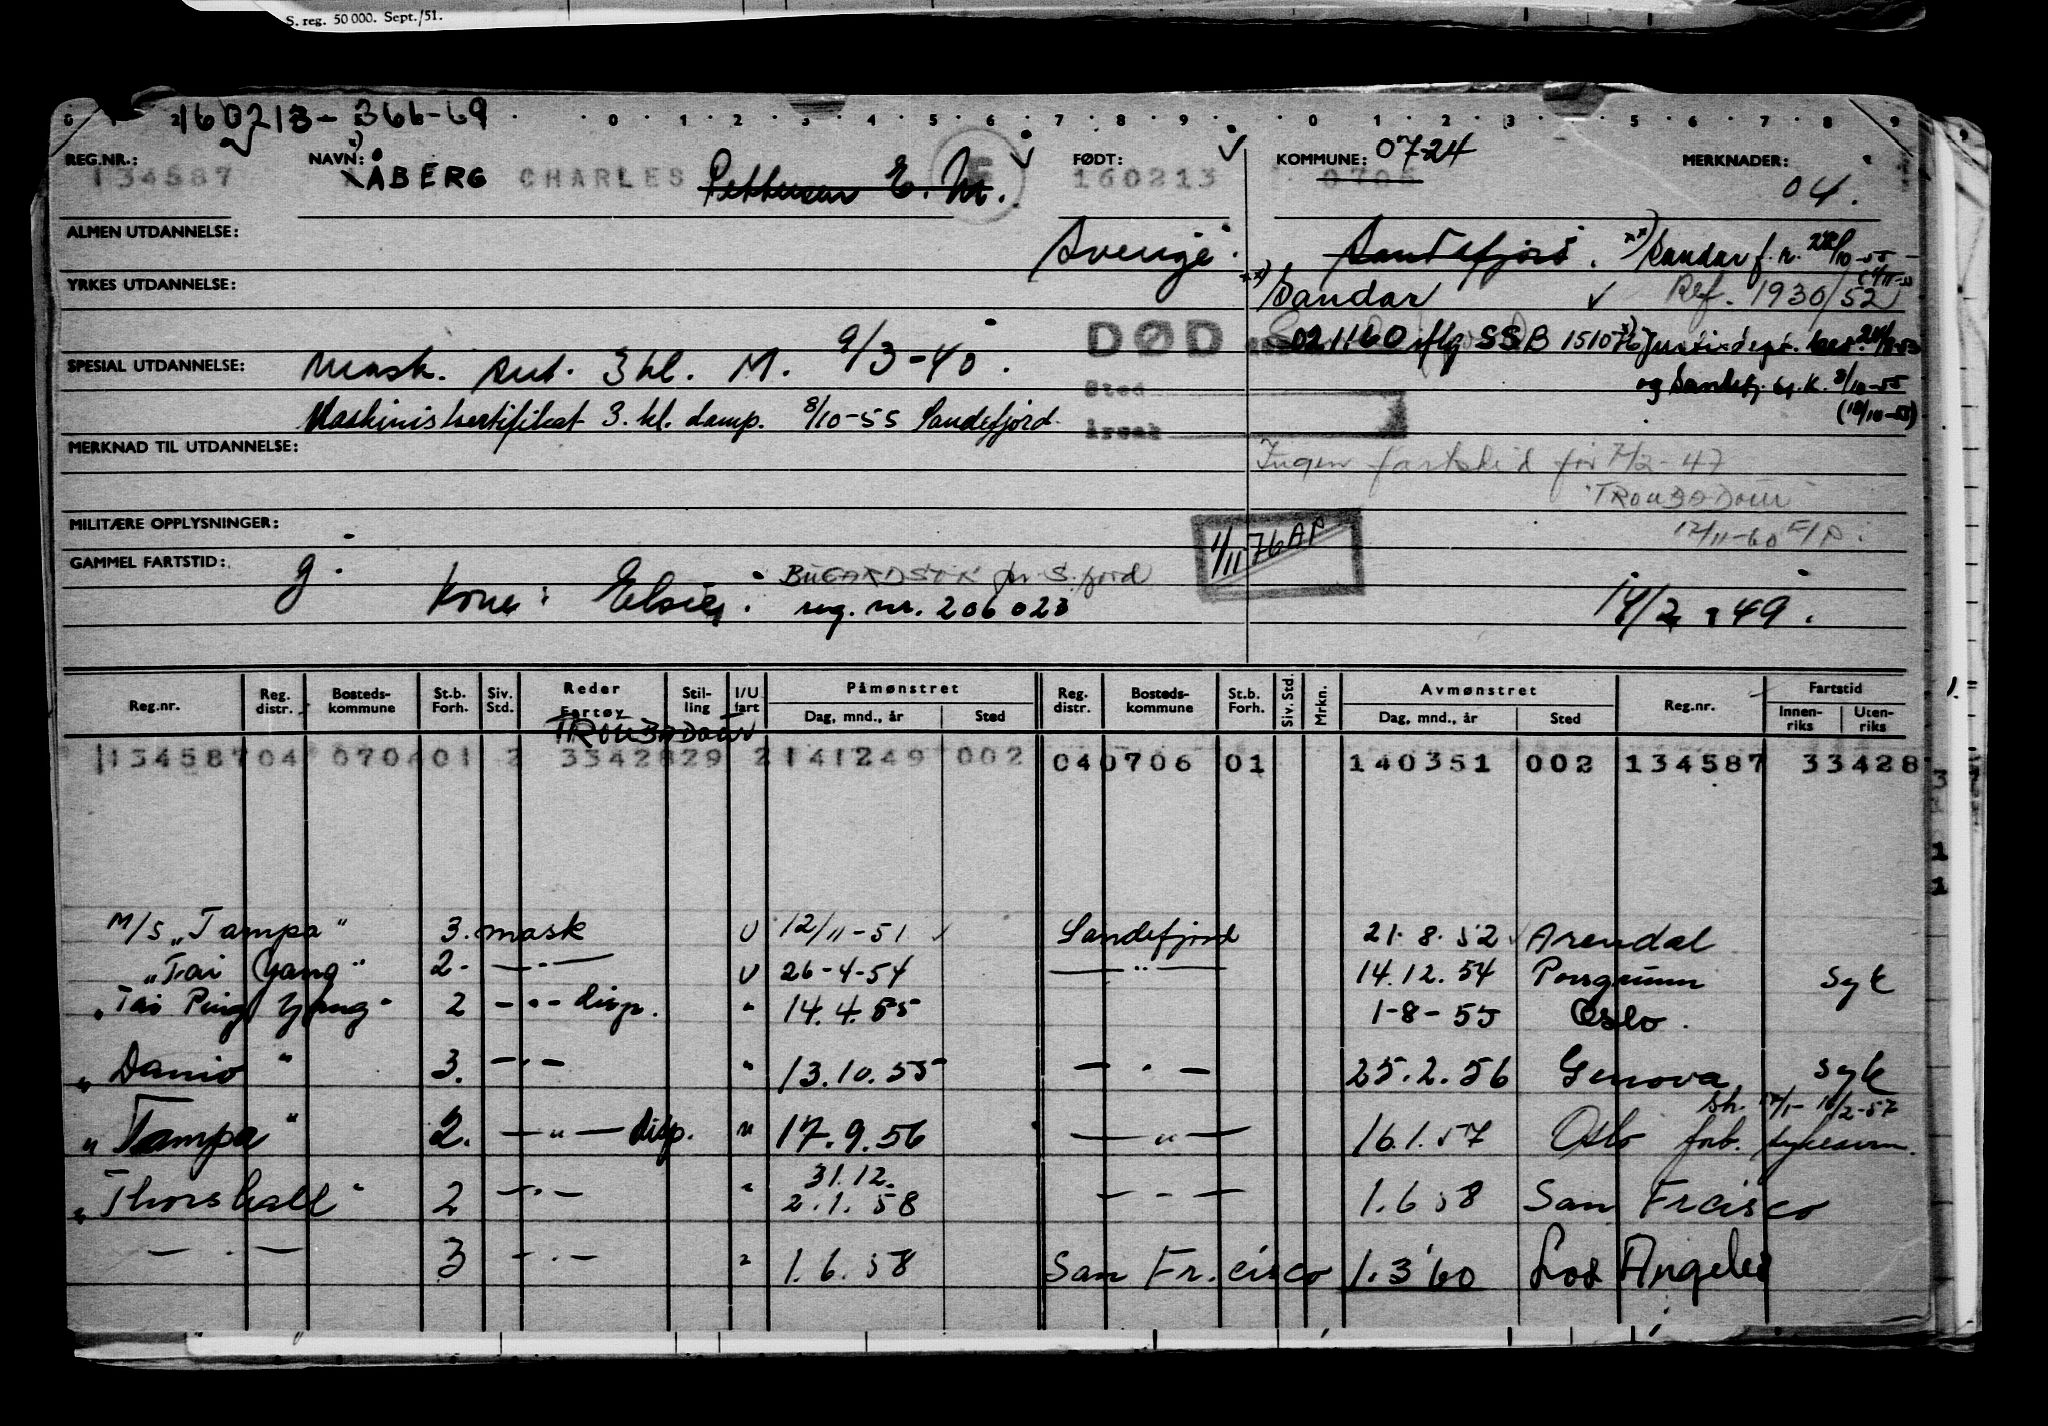 S. reg. 50 000. Sept./51.
160213-366-69
REG.NR.: NAVN: FØDT: KOMMUNE: 0724 MERKNADER:
134587 ÅBERG CHARLES Pettersen E. M. 160213 0706 04.
ALMEN UTDANNELSE: Sverige. Sandefjord. xx) Sandar f. r.
YRKES UTDANNELSE: xx) Sandar Ref. 1930/52
DØD 021160 iflg SSB 151076
SPESIAL UTDANNELSE: Mask. Ass. 3 kl. M. 9/3-40.
Sted og Sandefj. 8/10-55
Maskinistsertifikat 3. kl. damp. 8/10-55 Sandefjord. Årsak (18/10-55)
MERKNAD TIL UTDANNELSE: Ingen fartstid før 7/2-47
"TROUBADOUR"
MILITÆRE OPPLYSNINGER: 1/11 76 AP 12/11-60
GAMMEL FARTSTID: g.
Kone: Elsie. BUGARDSVN pr S.fjord
reg. nr. 206023 14/2-49.
Reg.nr. Reg. distr. Bosteds-kommune St.b. Forh. Siv. Std. Reder Fartøy Stil-ling I/U fart Påmønstret Dag, mnd., år Sted Reg. distr. Bosteds-kommune St.b. Forh. Siv. Std. Mrkn. Avmønstret Dag, mnd., år Sted Reg.nr. Fartstid Innen-riks Uten-riks
TROUBADOUR
134587 04 0706 01 2 33428 29 2 141249 002 04 0706 01 140351 002 134587 33428
M/S "Tampa" 3. mask U 12/11-51 Sandefjord 21.8.52 Arendal
"Tai Yang" 2. —"— U 26-4-54 —"— 14.12.54 Porsgrunn Syk
"Tai Ping Yang" 2 —"— disp. " 14.4.55 1-8-55 Oslo.
"Danio" 3. —"— " 13.10.55 —"— 25.2.56 Genova, Syk
"Tampa" 2. —"— disp. " 17.9.56 —"— 16.1.57 Oslo forb.
"Thorshall" 2 —"— " 31.12. 2.1.58 —"— 1.6.58 San Frcisco
—"— 3 —"— " 1.6.58 San Fr.cisco 1.3.60 Los Angeles